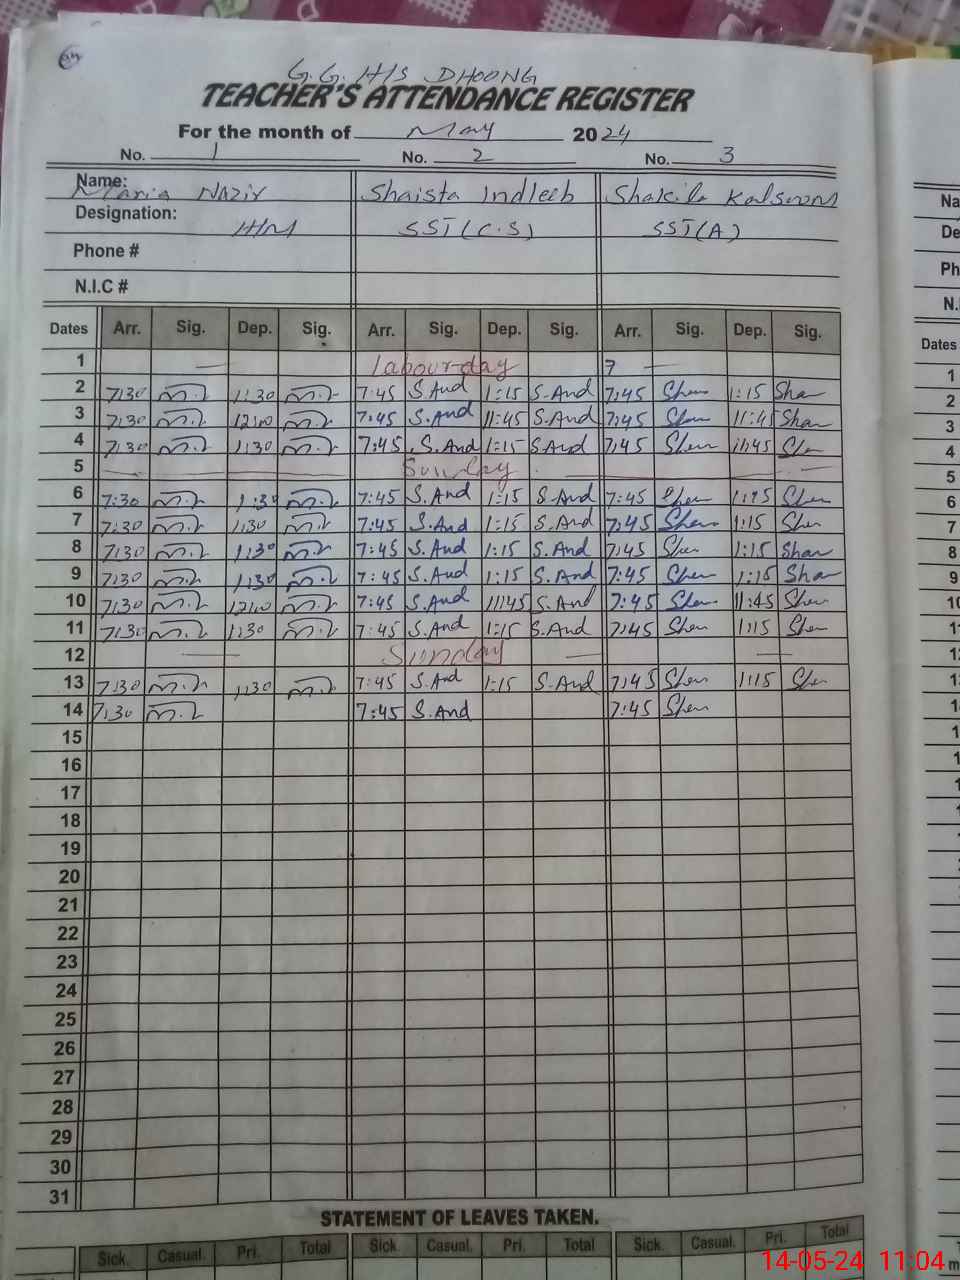 G.G. H/S DHOONG
TEACHER'S ATTENDANCE REGISTER
For the month of May 2024
No. 1 No. 2 No. 3
Name: Maria Nazir Shaista Indleeb Shakila Kalsoom
Designation: H/M SST(C.S) SST(A)
Phone #
N.I.C #
Dates Arr. Sig. Dep. Sig. Arr. Sig. Dep. Sig. Arr. Sig. Dep. Sig.
1 — Labour day 7 —
2 7:30 1:30 7:45 S.And 1:15 S.And 7:45 Shem 1:15 Sha
3 7:30 12:00 7:45 S.And 11:45 S.And 7:45 Shem 11:45 Sham
4 7:30 1:30 7:45 S.And 1:15 S.And 7:45 Shem 11:45 She
5 Sunday
6 7:30 1:30 7:45 S.And 1:15 S.And 7:45 Shem 1:15 Shem
7 7:30 1:30 7:45 S.And 1:15 S.And 7:45 Shem 1:15 She
8 7:30 1:30 7:45 S.And 1:15 S.And 7:45 She 1:15 Sham
9 7:30 1:30 7:45 S.And 1:15 S.And 7:45 Shem 1:15 Sha
10 7:30 12:00 7:45 S.And 11:45 S.And 7:45 Shem 11:45 Shem
11 7:30 1:30 7:45 S.And 1:15 S.And 7:45 Shem 1:15 Shem
12 — Sunday — —
13 7:30 1:30 7:45 S.And 1:15 S.And 7:45 Shem 1:15 Shem
14 7:30 7:45 S.And 7:45 Shem
15
16
17
18
19
20
21
22
23
24
25
26
27
28
29
30
31
STATEMENT OF LEAVES TAKEN.
Sick. Casual. Pri. Total Sick. Casual. Pri. Total Sick. Casual. Pri. Total
14-05-24 11:04
Na
De
Ph
N.I
Dates
1
2
3
4
5
6
7
8
9
10
11
12
13